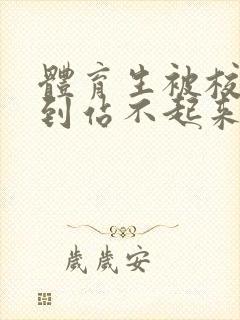 體育生被校
到佔不起來
歲歲安